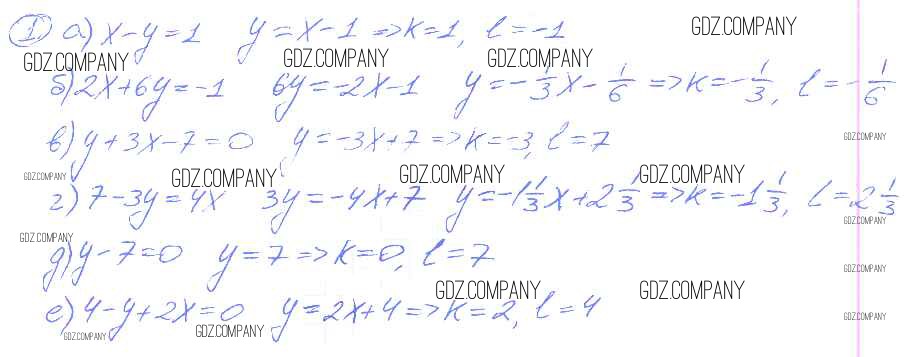 1) а) x-y=1 y=x-1 => k=1, l=-1 GDZ.COMPANY
GDZ.COMPANY GDZ.COMPANY GDZ.COMPANY
б) 2x+6y=-1 6y=-2x-1 y=-1/3x-1/6 => k=-1/3, l=-1/6
в) y+3x-7=0 y=-3x+7 => k=-3, l=7 GDZ.COMPANY
GDZ.COMPANY GDZ.COMPANY GDZ.COMPANY GDZ.COMPANY
г) 7-3y=4x 3y=-4x+7 y=-1 1/3x+2 1/3 => k=-1 1/3, l=2 1/3
GDZ.COMPANY GDZ.COMPANY
д) y-7=0 y=7 => k=0, l=7 GDZ.COMPANY
GDZ.COMPANY GDZ.COMPANY
е) 4-y+2x=0 y=2x+4 => k=2, l=4 GDZ.COMPANY
GDZ.COMPANY GDZ.COMPANY